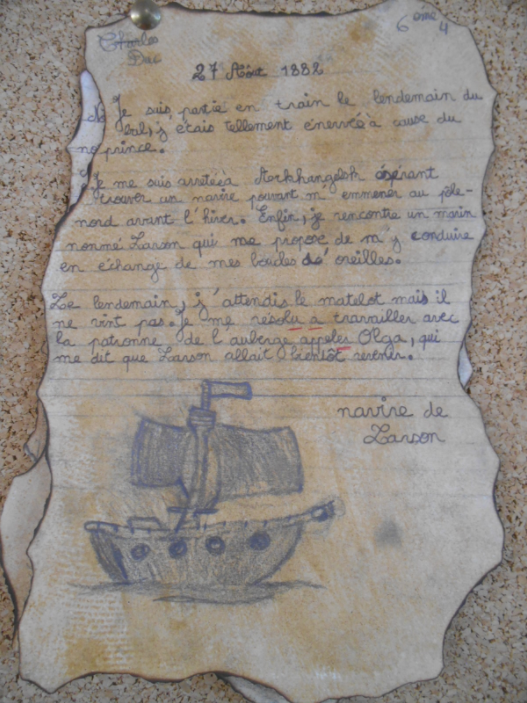 Charles
6 eme 4
27 Aôut 1882
Je suis partie en train le lendemain du
bal, j'étais tellement énervée à cause du
prince.
Je me suis arretée à Arkhangelsk éspérant
trouver un navire pouvant m'emmener au pôle-
nord avant l'hiver. Enfin, je rencontre un marin
nommé Larson qui me propose de m'y conduire
en échange de mes boucles dé oreilles.
Le lendemain, j'attendis le matelot mais il
ne vint pas. Je me résolu a travailler avec
la patronne de l'auberge appeler Olga, qui
me dit que Larson allait bientôt revenir.
navire de
Larson